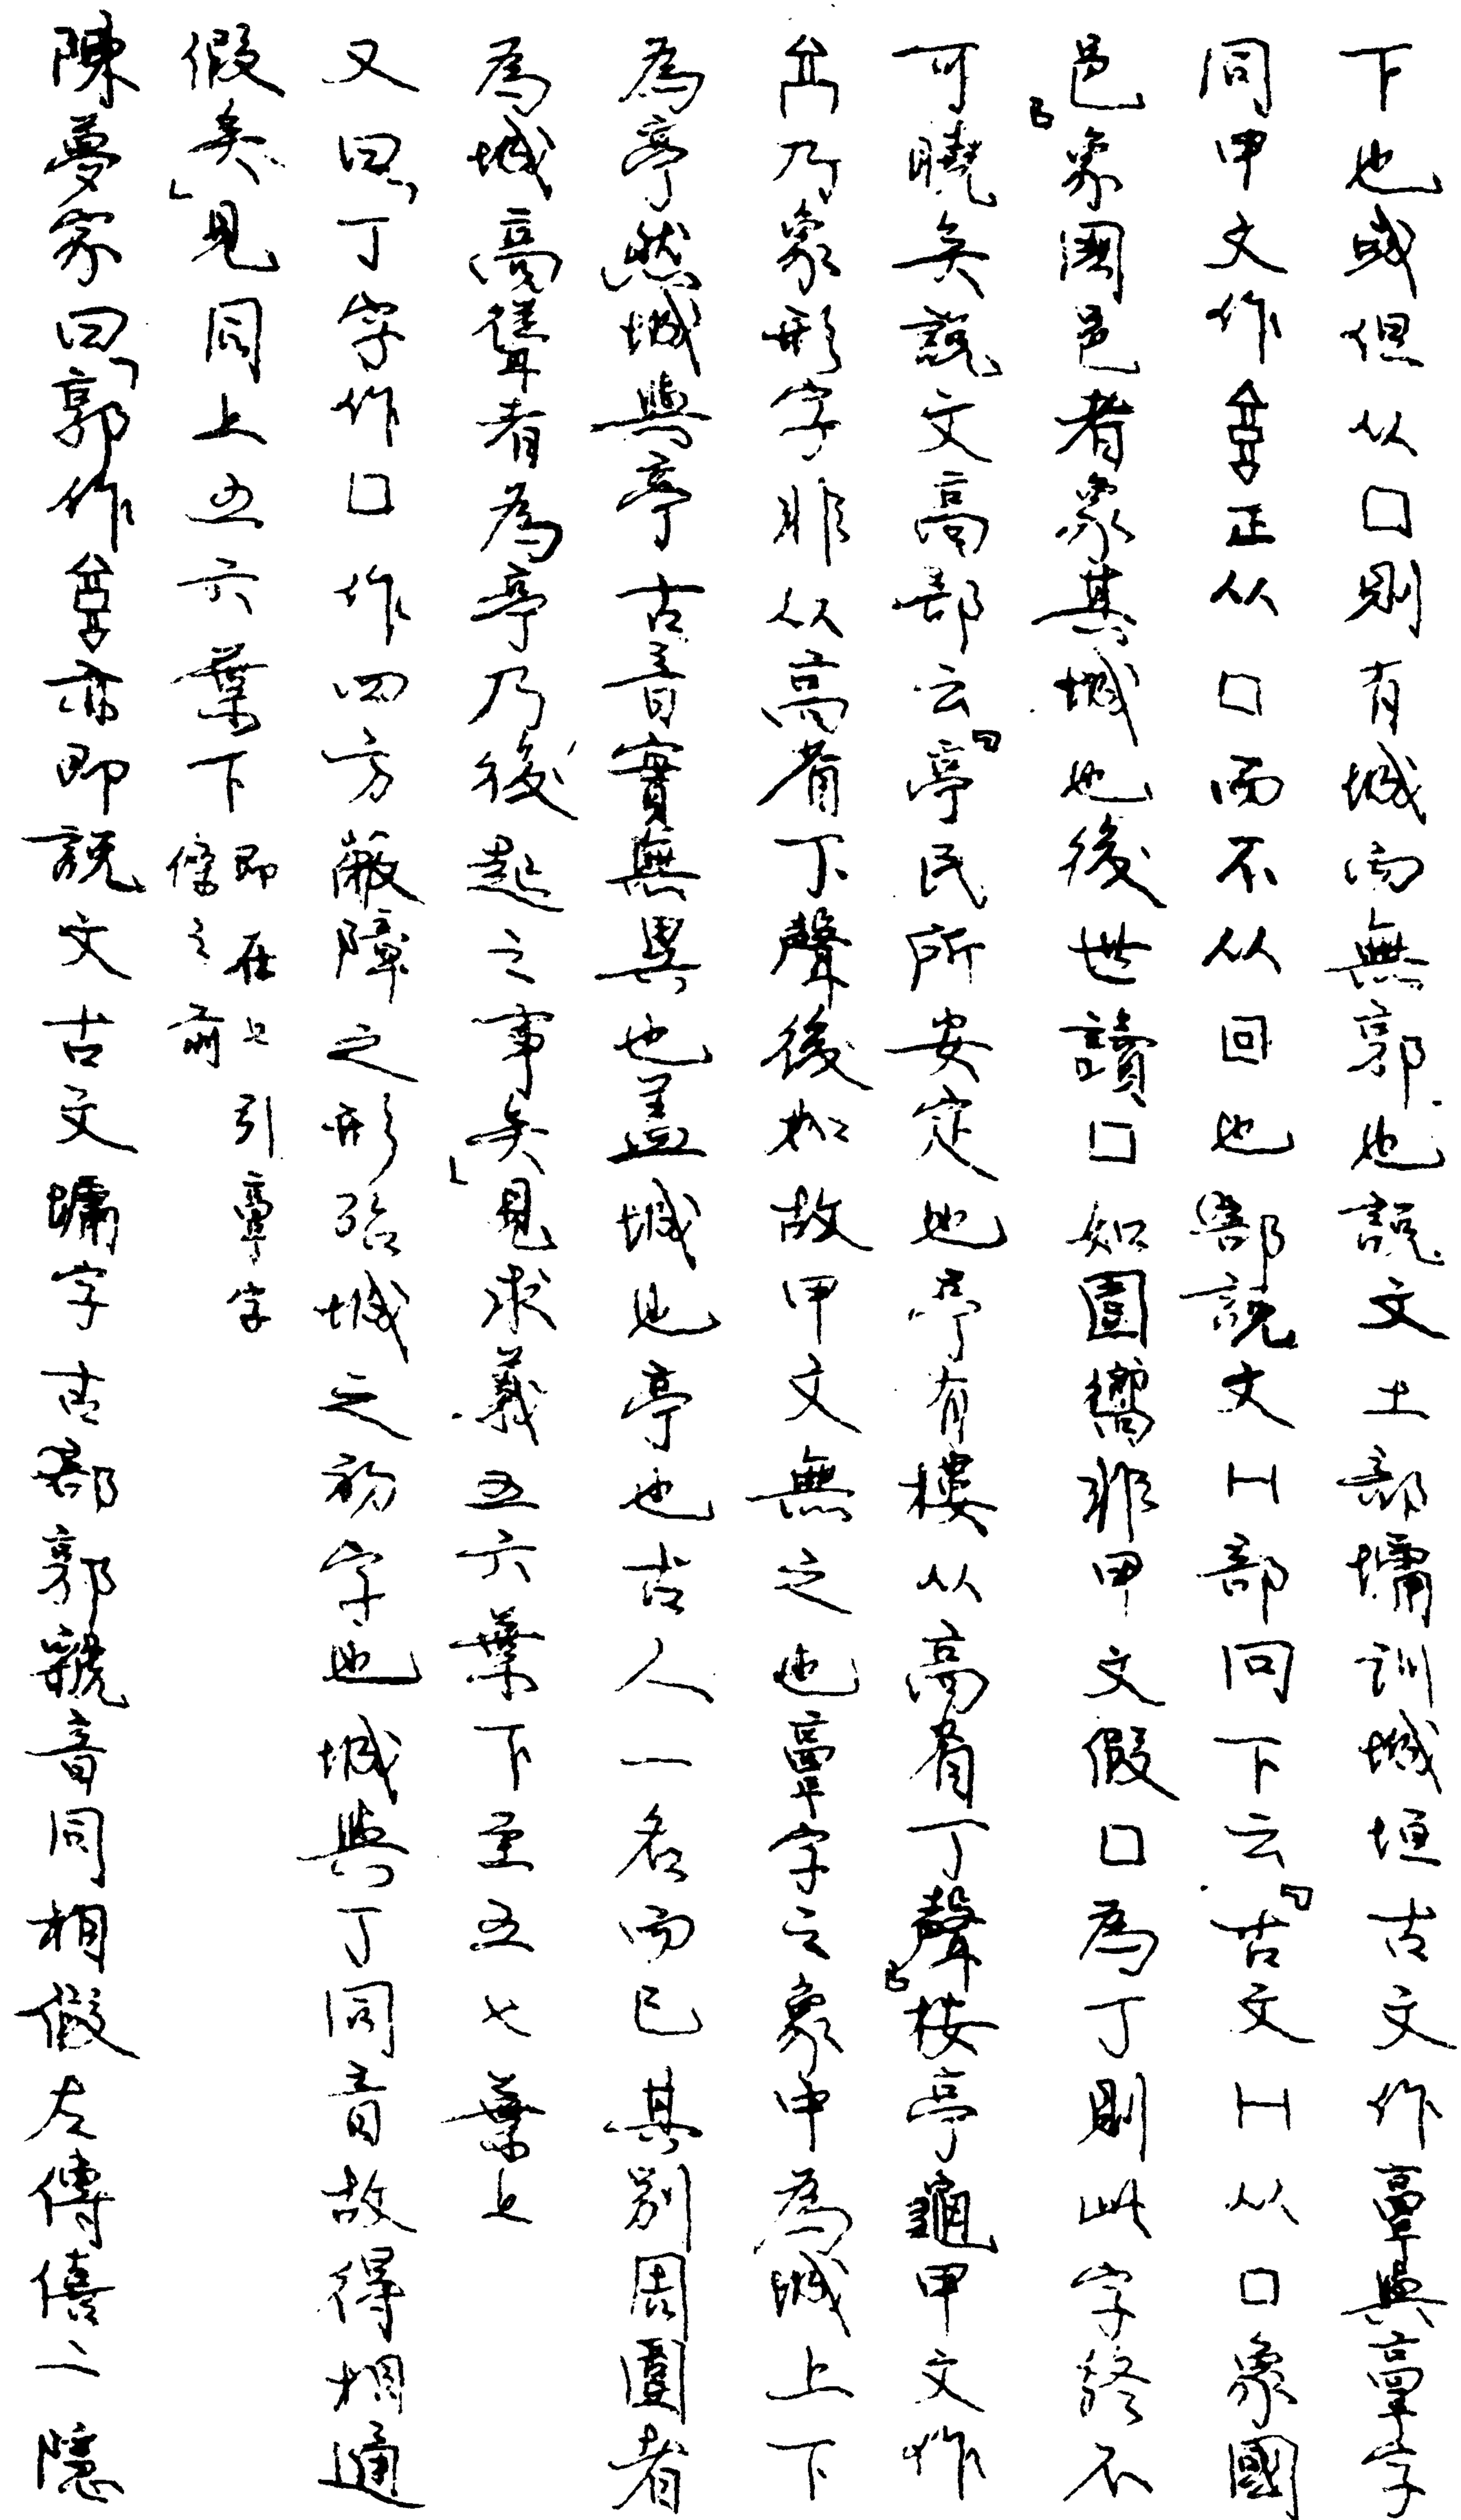 下也或但从囗則有城而無郭也說文土部墉訓城垣古文作𩫖與𩫏字
同甲文作正从囗而不从回也鄙說文冂部冋下云「古文冂从囗象國
邑」象國邑者象其城也後世讀囗如圍嚮非甲文假囗為丁則此字終不
可曉矣說文高部云「亭民所安定也亭有樓从高省丁聲」按亭龜甲文作
乃象形字非从高省丁聲後加故甲文無之也𩫏字之象中為城上下
為亭然城與亭古音實無異也蓋城也亭也古人一名而已其別周圍者
為城高聳者為亭乃後起之事矣」見求義五六葉下至五七葉上
又曰「丁字作囗作四方蔽障之形殆城之初字也城與丁同音故得相通
假矣」見同上五六葉下即在上引𩫏字條之前
陳夢家曰「郭作亦即說文古文墉字古鄙郭虢音同相假左傳僖二隱